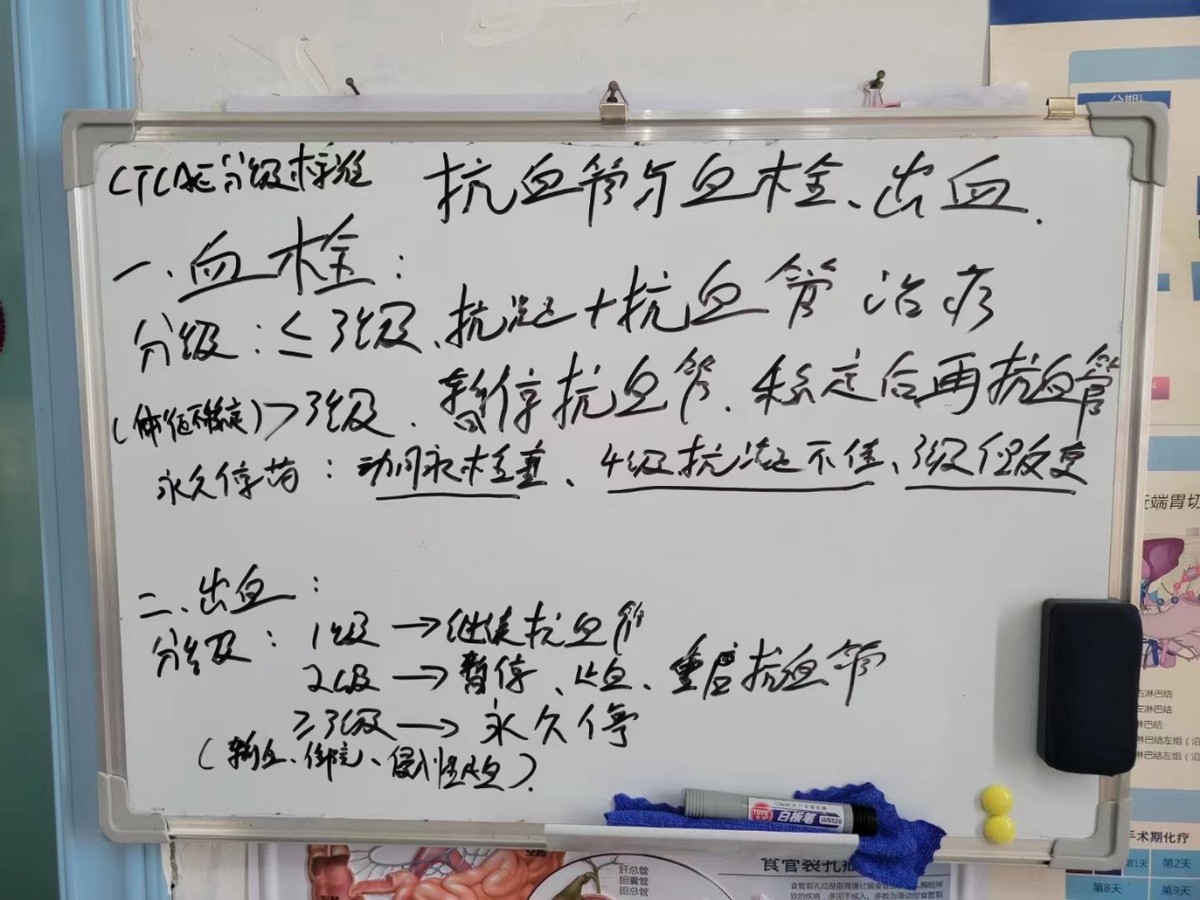 CTCAE分级标准
抗血管与血栓、出血.
一、血栓:
分级:≤3级、抗凝+抗血管治疗
(体征不稳定)>3级.暂停抗血管、稳定后再抗血管
永久停药:动 栓塞、4级抗凝不佳、3级但反复
二、出血:
分级:1级→继续抗血管
2级→暂停、止血、重启抗血管
≥3级→永久停
(输血、住院、侵入性止血).
分期
近端胃切
右淋巴结
左淋巴结
淋巴结
淋巴结左组(沿
淋巴结左组(沿
TOYO
白板笔
WB528
手术期化疗
第1天 第2天
第8天 第9天
肝总管
胆囊管
胆总管
食管裂孔疝